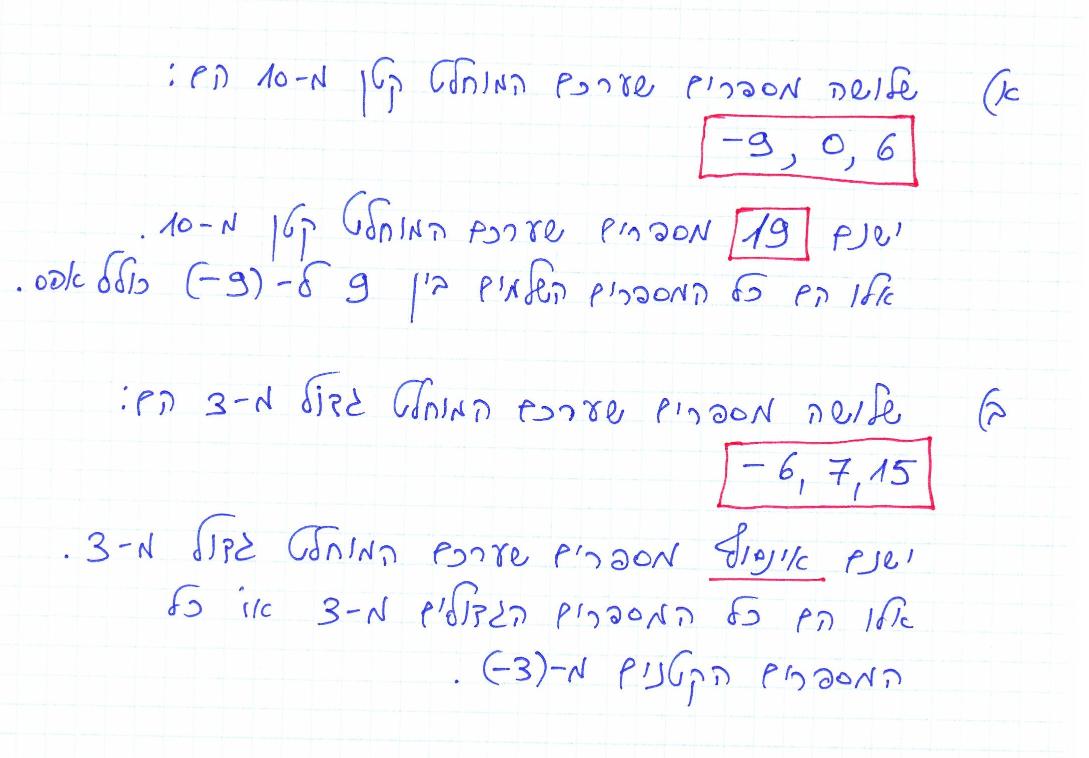 א) שלושה מספרים שערכם המוחלט קטן מ-10 הם:
-9, 0, 6
ישנם 19 מספרים שערכם המוחלט קטן מ-10.
אלו הם כל המספרים השלמים בין 9 ל-(-9) כולל אפס.
ב) שלושה מספרים שערכם המוחלט גדול מ-3 הם:
-6, 7, 15
ישנם אינסוף מספרים שערכם המוחלט גדול מ-3.
אלו הם כל המספרים הגדולים מ-3 או כל
המספרים הקטנים מ-(-3).